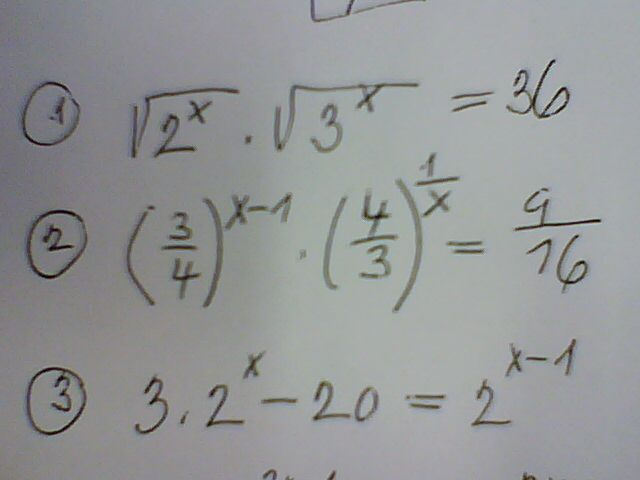 ① √2^x . √3^x = 36
② (3/4)^(x-1) . (4/3)^(1/x) = 9/16
③ 3 . 2^x - 20 = 2^(x-1)